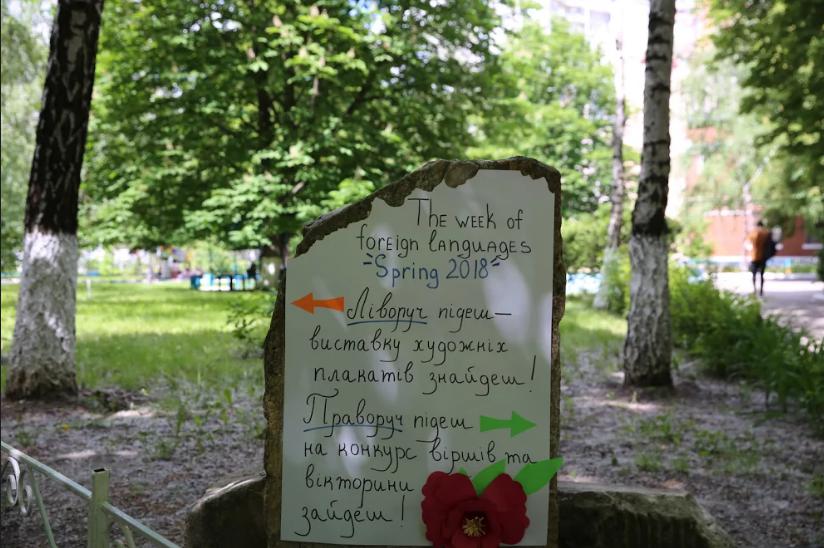 The week of
foreign languages
"Spring 2018"
Ліворуч підеш —
виставку художніх
плакатів знайдеш!
Праворуч підеш
на конкурс віршів та
вікторини
зайдеш!